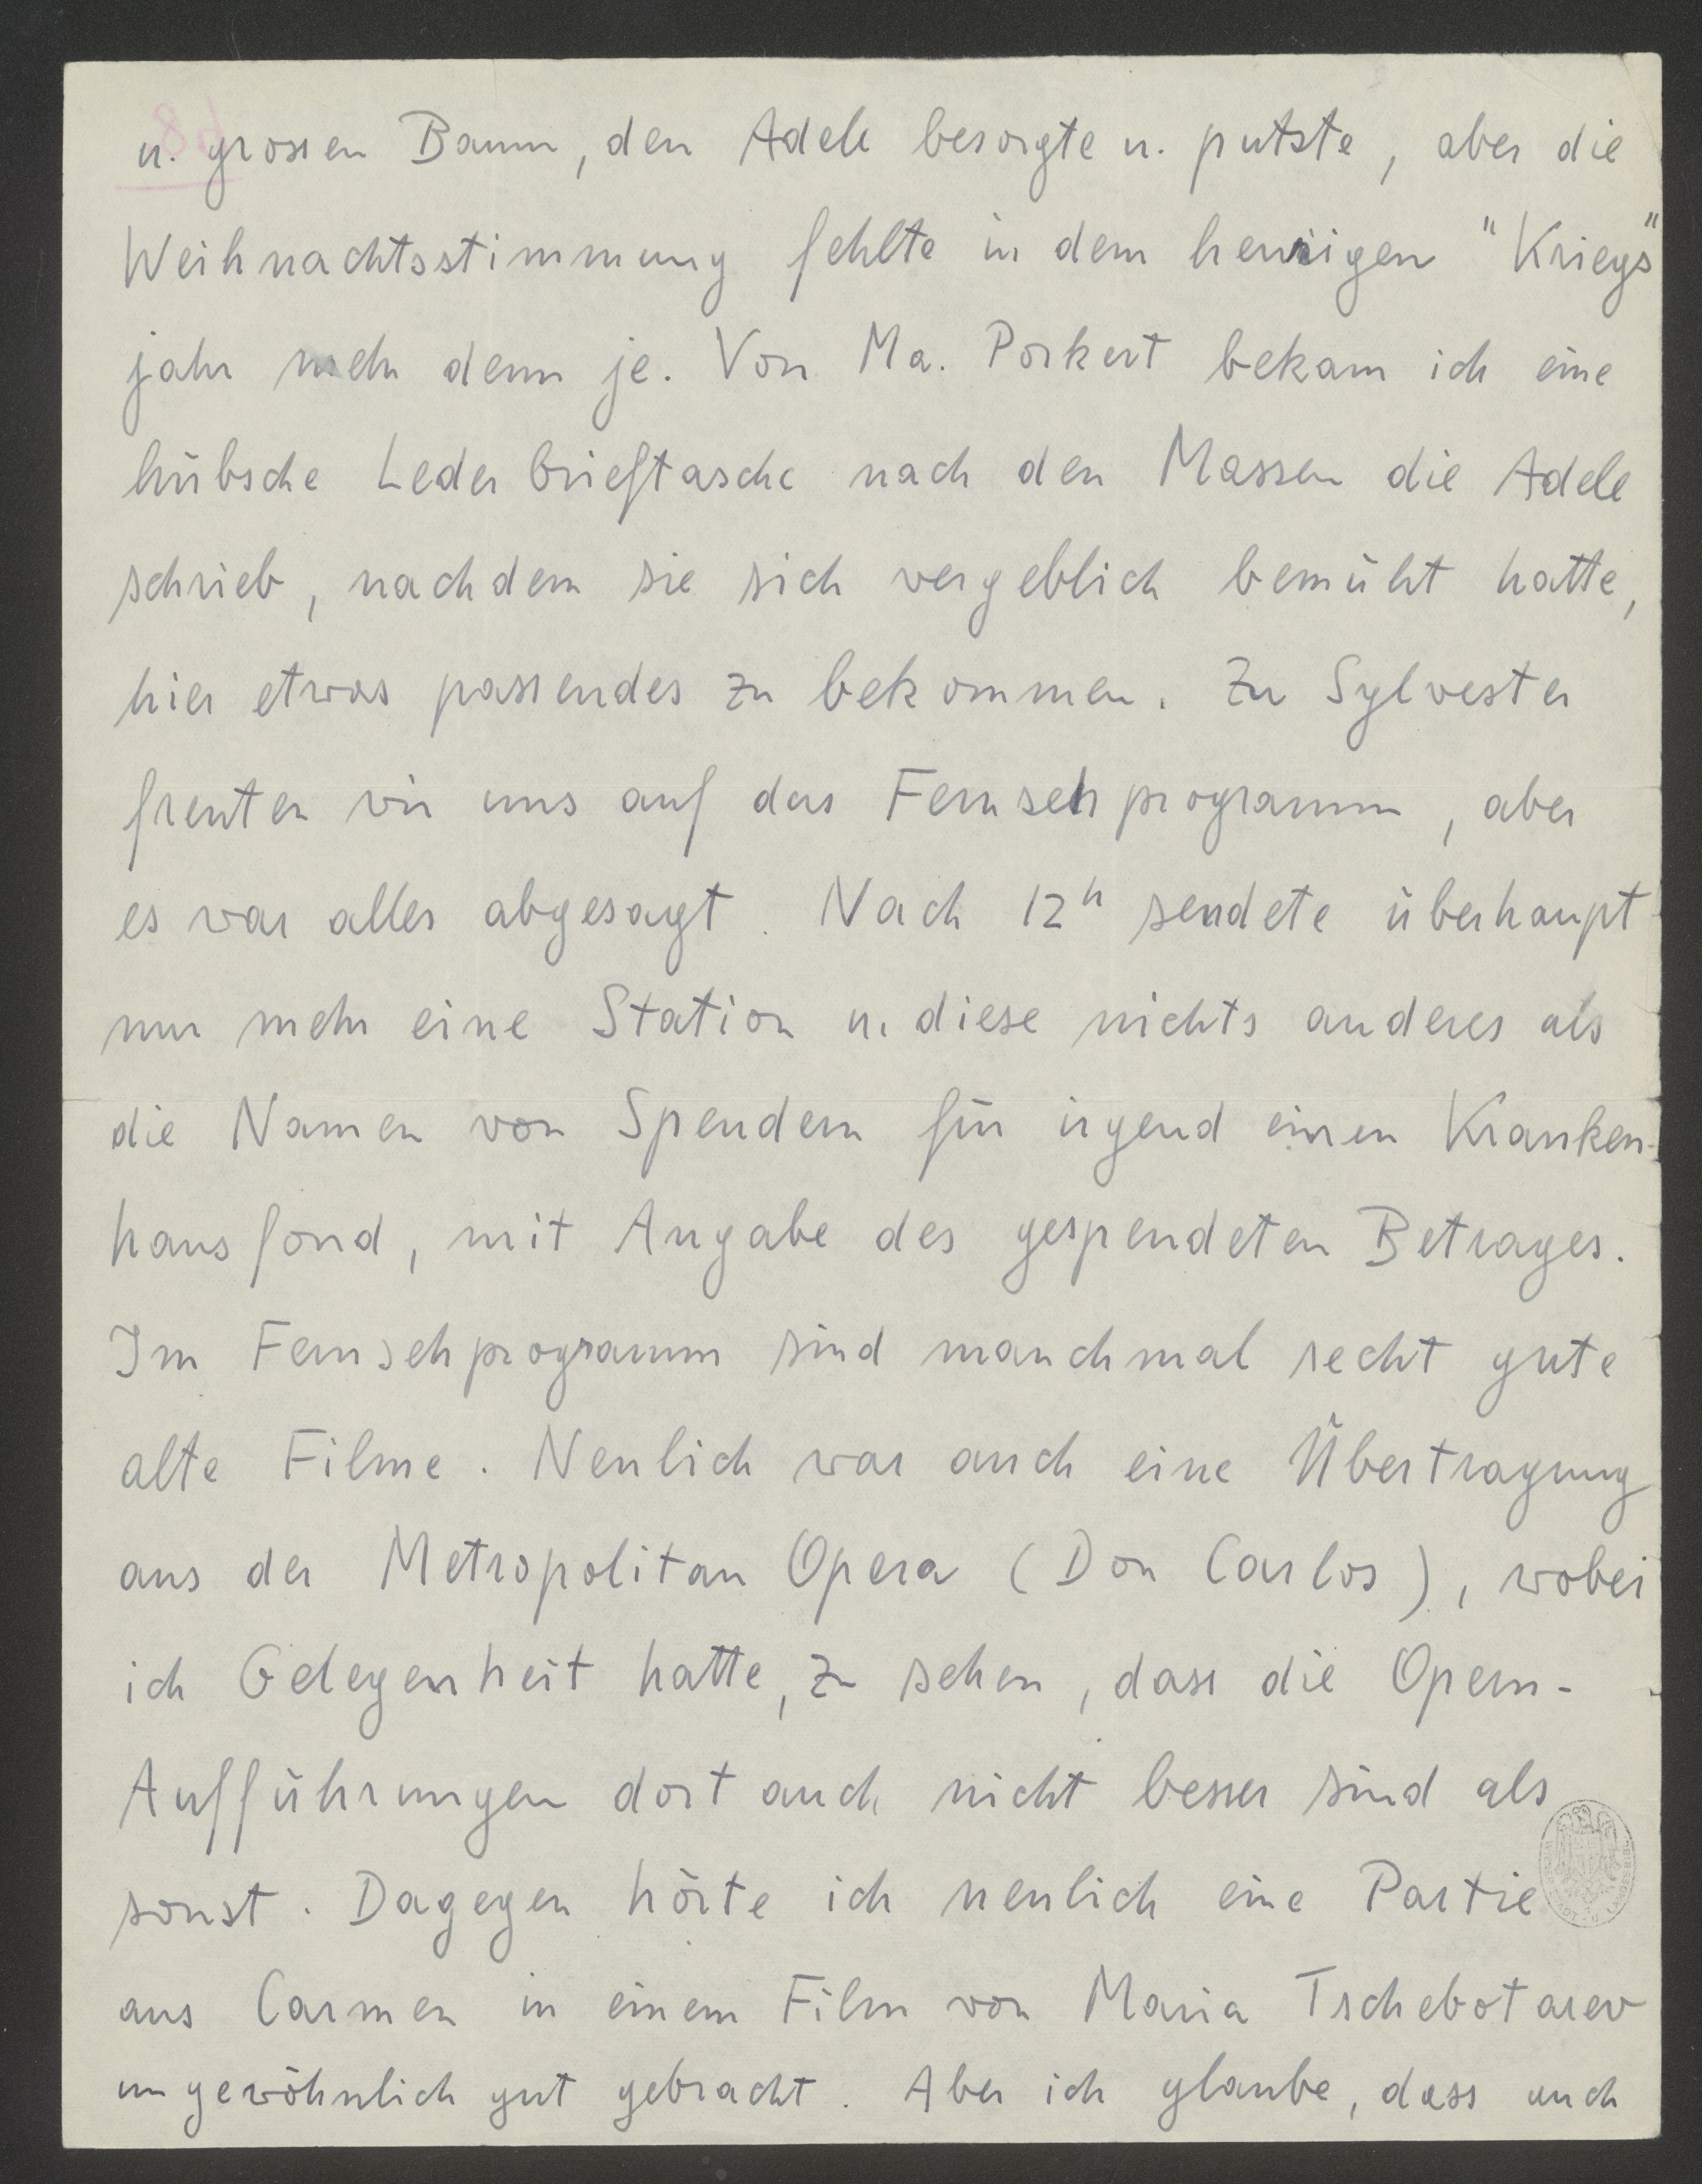 u. grossen Baum, den Adele besorgte u. putzte, aber die
Weihnachtsstimmung fehlte in dem heurigen "Kriegs"
jahr mehr denn je. Von Ma. Porkert bekam ich eine
hübsche Lederbrieftasche nach den Massen die Adele
schrieb, nachdem sie sich vergeblich bemüht hatte,
hier etwas passendes zu bekommen. Zu Sylvester
freuten wir uns auf das Fernsehprogramm, aber
es war alles abgesagt. Nach 12h sendete überhaupt
nur mehr eine Station u. diese nichts anderes als
die Namen von Spendern für irgend einen Kranken-
hausfond, mit Angabe des gespendeten Betrages.
Im Fernsehprogramm sind manchmal recht gute
alte Filme. Neulich war auch eine Übertragung
aus der Metropolitan Opera (Don Carlos), wobei
ich Gelegenheit hatte, zu sehen, dass die Opern-
Aufführungen dort auch nicht besser sind als
sonst. Dagegen hörte ich neulich eine Partie
aus Carmen in einem Film von Maria Tschebotarev
ungewöhnlich gut gebracht. Aber ich glaube, dass auch